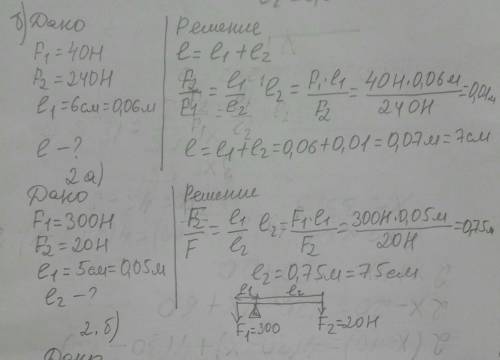 б) Дано
F₁ = 40Н
F₂ = 240Н
ℓ₁ = 6см = 0,06м
ℓ – ?
Решение
ℓ = ℓ₁ + ℓ₂
F₂/F₁ = ℓ₁/ℓ₂ ℓ₂ = F₁·ℓ₁/F₂ = 40Н·0,06м/240Н = 0,01м
ℓ = ℓ₁ + ℓ₂ = 0,06 + 0,01 = 0,07м = 7см
2а)
Дано
F₁ = 300Н
F₂ = 20Н
ℓ₁ = 5см = 0,05м
ℓ₂ – ?
Решение
F₂/F = ℓ₁/ℓ₂ ℓ₂ = F₁·ℓ₁/F₂ = 300Н·0,05м/20Н = 0,75м
ℓ₂ = 0,75м = 75см
ℓ₁ ℓ₂
F₁ = 300 F₂ = 20Н
2.б)
Дано